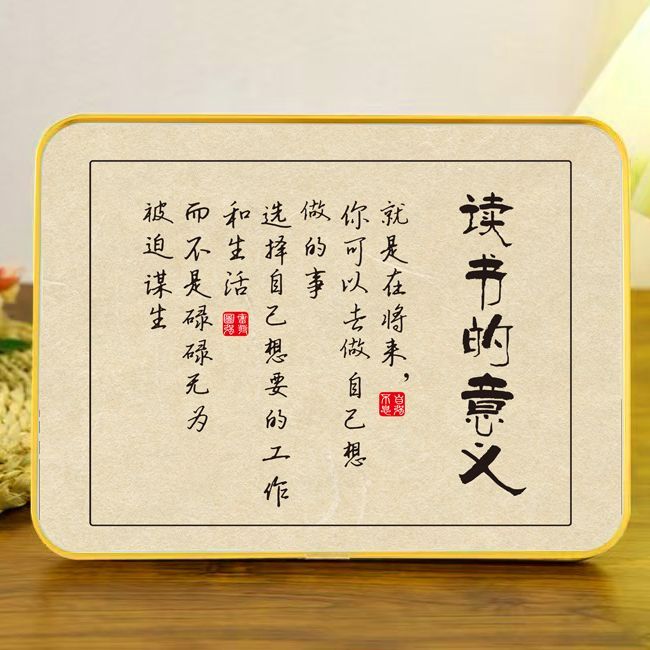 读书的意义
就是在将来，
你可以去做自己想
做的事
选择自己想要的工作
和生活
而不是碌碌无为
被迫谋生
自强
不息